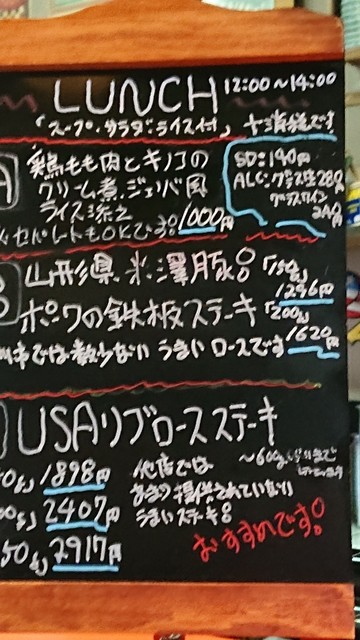 LUNCH 12:00～14:00
「スープ・サラダ・ライス付」 +消費税です
鶏もも肉とキノコの
クリーム煮.ジェノバ風
ライス添え
セパレートもOKです。1000円
SD:140円
ALC:グラス生28
グラスワイン
山形県.米澤豚。「150g」
1296円
ポワの鉄板ステーキ「200g」
1620円
では数少ない うまいロースです
USAリブロースステーキ
～600g
0g」1898円 他店では
00g」2407円 あまり提供されていない
50g」2917円 うまいステーキ。
おすすめです。